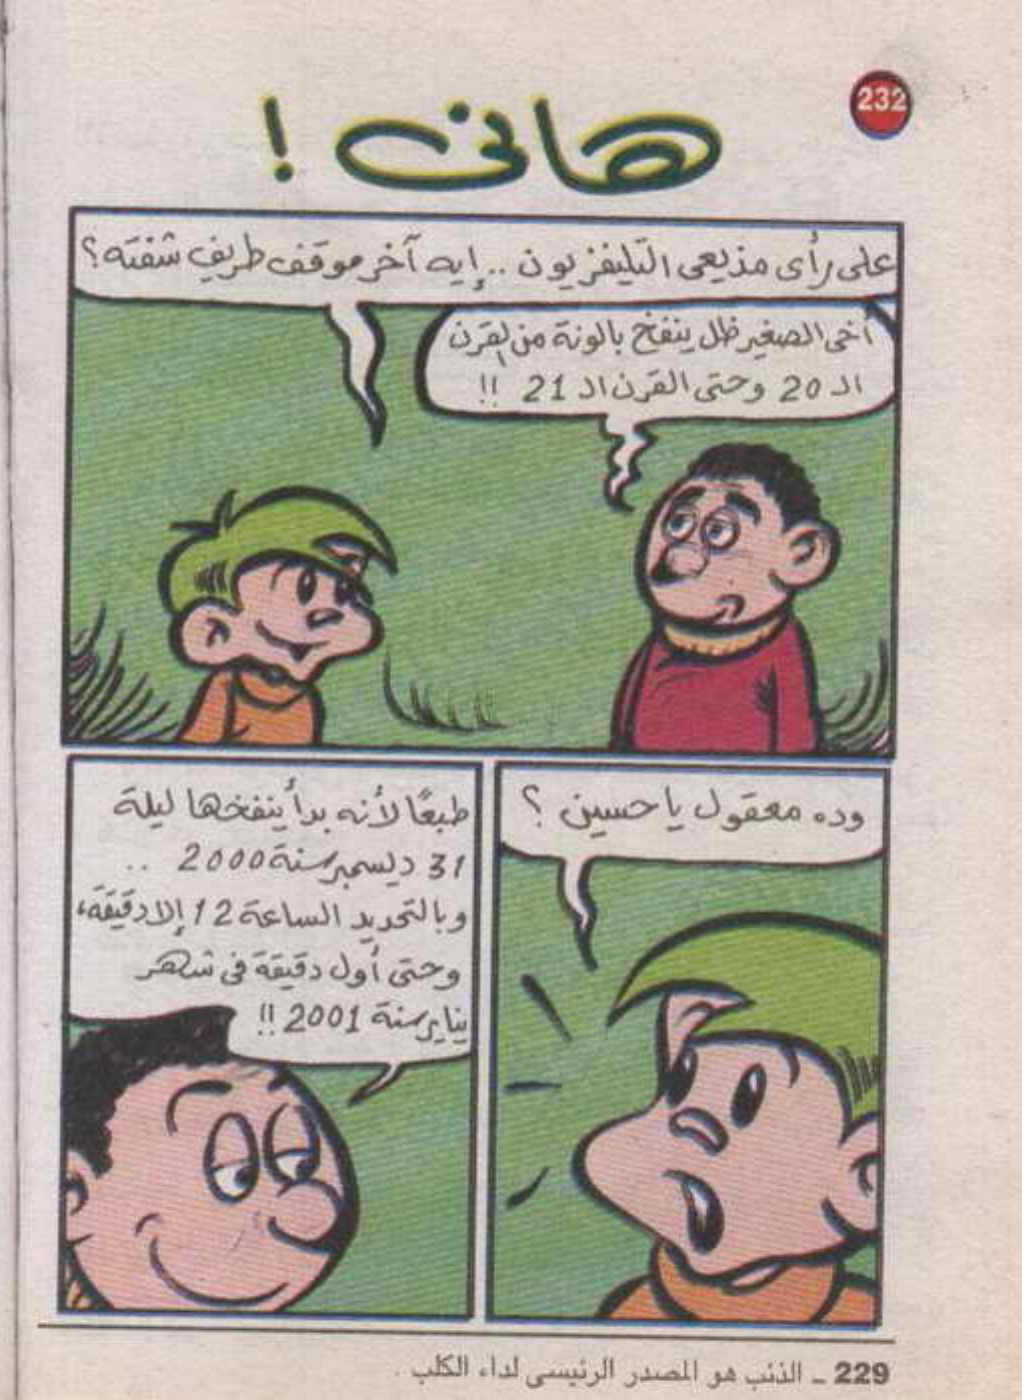 232
هانى !
على رأى مذيعى التليفزيون .. إيه آخر موقف طريف شفته؟
أخى الصغير ظل ينفخ بالونة من القرن
الـ 20 وحتى القرن الـ 21 !!
وده معقول يا حسين ؟
طبعًا لأنه بدأ ينفخها ليلة
31 ديسمبر سنة 2000 ..
وبالتحديد الساعة 12 إلا دقيقة،
وحتى أول دقيقة فى شهر
يناير سنة 2001 !!
229 ـ الذئب هو المصدر الرئيسى لداء الكلب .